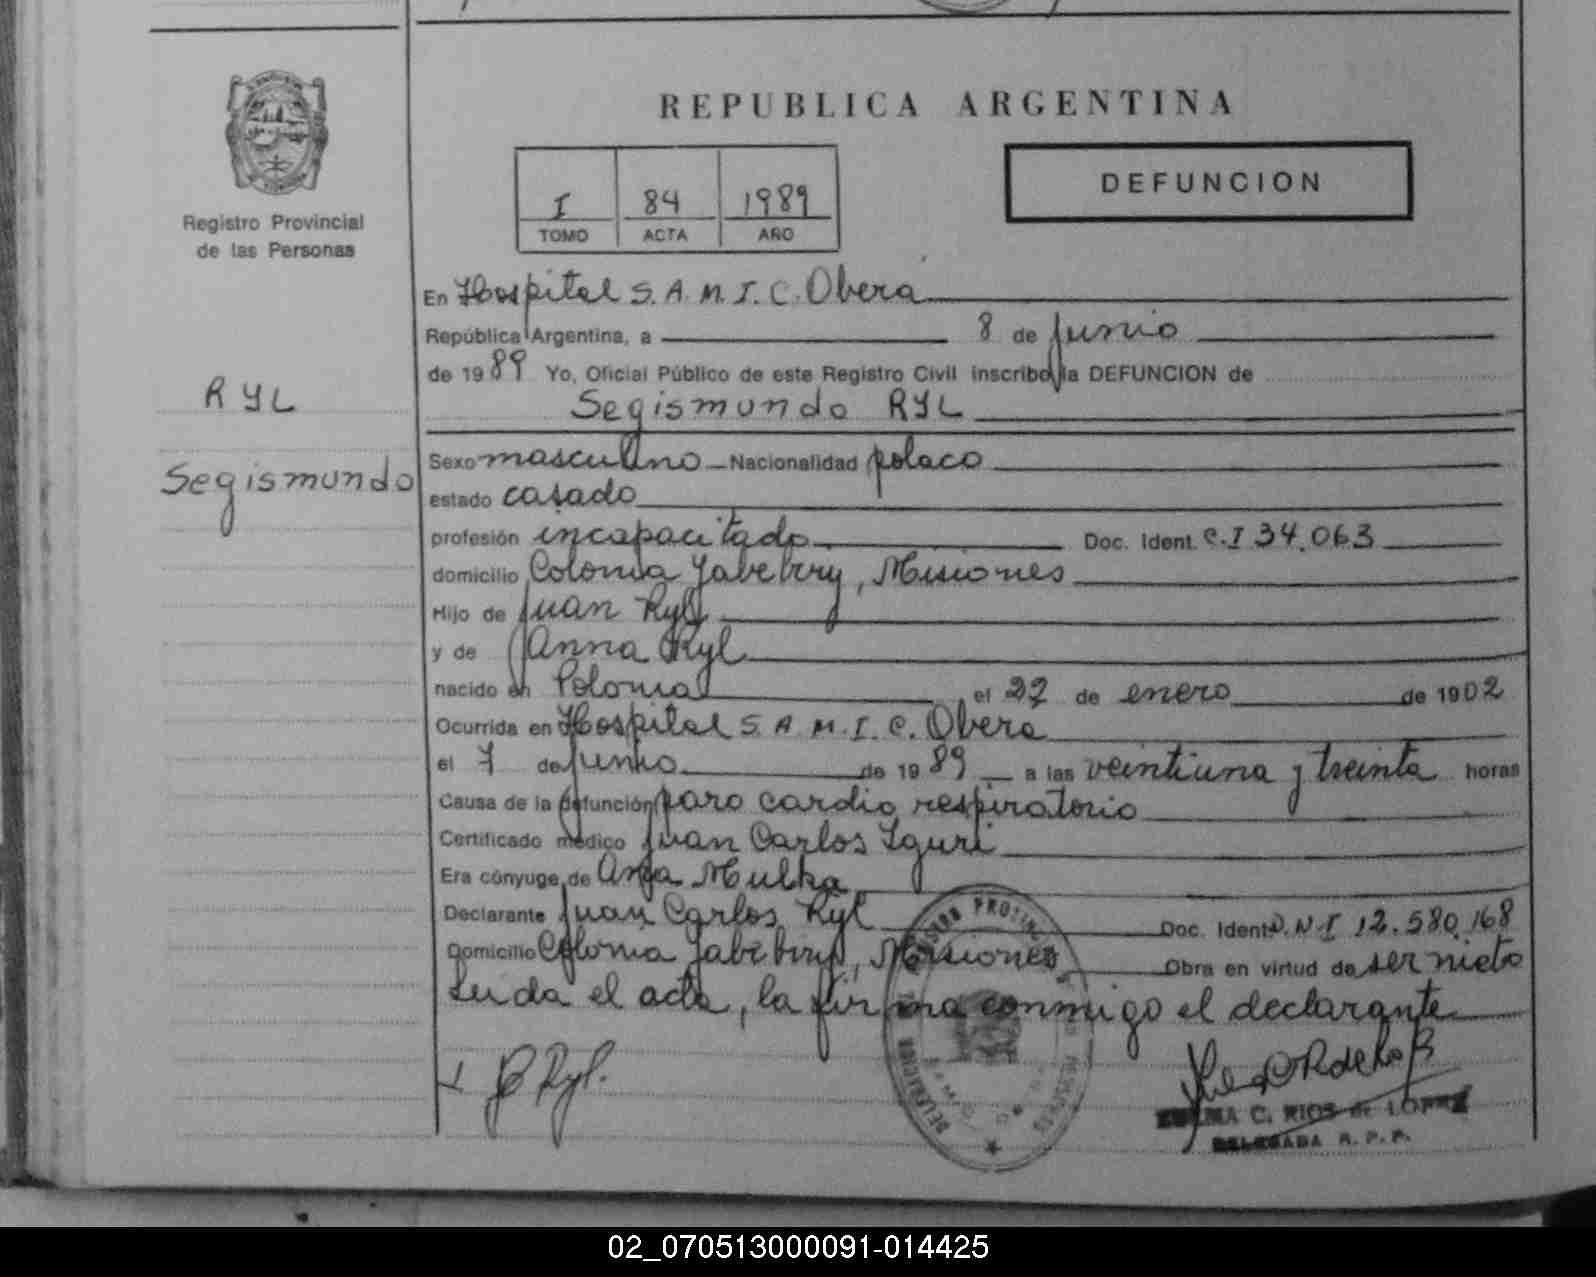 REPUBLICA ARGENTINA
DEFUNCION
I 84 1989
TOMO ACTA AÑO
Registro Provincial
de las Personas
RYL
Segismundo
En Hospital S.A.M.I.C. Oberá
República Argentina, a 8 de junio
de 1989 Yo, Oficial Público de este Registro Civil inscribo la DEFUNCION de
Segismundo RYL
Sexo masculino Nacionalidad polaco
estado casado
profesión incapacitado Doc. Ident. C.I 34.063
domicilio Colonia Yabebiry, Misiones
Hijo de Juan Ryl
y de Anna Ryl
nacido en Polonia el 27 de enero de 1902
Ocurrida en Hospital S.A.M.I.C. Obera
el 7 de junio de 1989 a las veintiuna y treinta horas
Causa de la defunción paro cardio respiratorio
Certificado médico Juan Carlos Iguri
Era cónyuge de Ana Mulka
Declarante Juan Carlos Ryl Doc. Ident. D.N.I 12.580.168
Domicilio Colonia Yabebiry, Misiones Obra en virtud de ser nieto
Leida el acta, la firma conmigo el declarante
Ryl.
C. RIOS de LOPEZ
DELEGADA R. P. P.
02_070513000091-014425